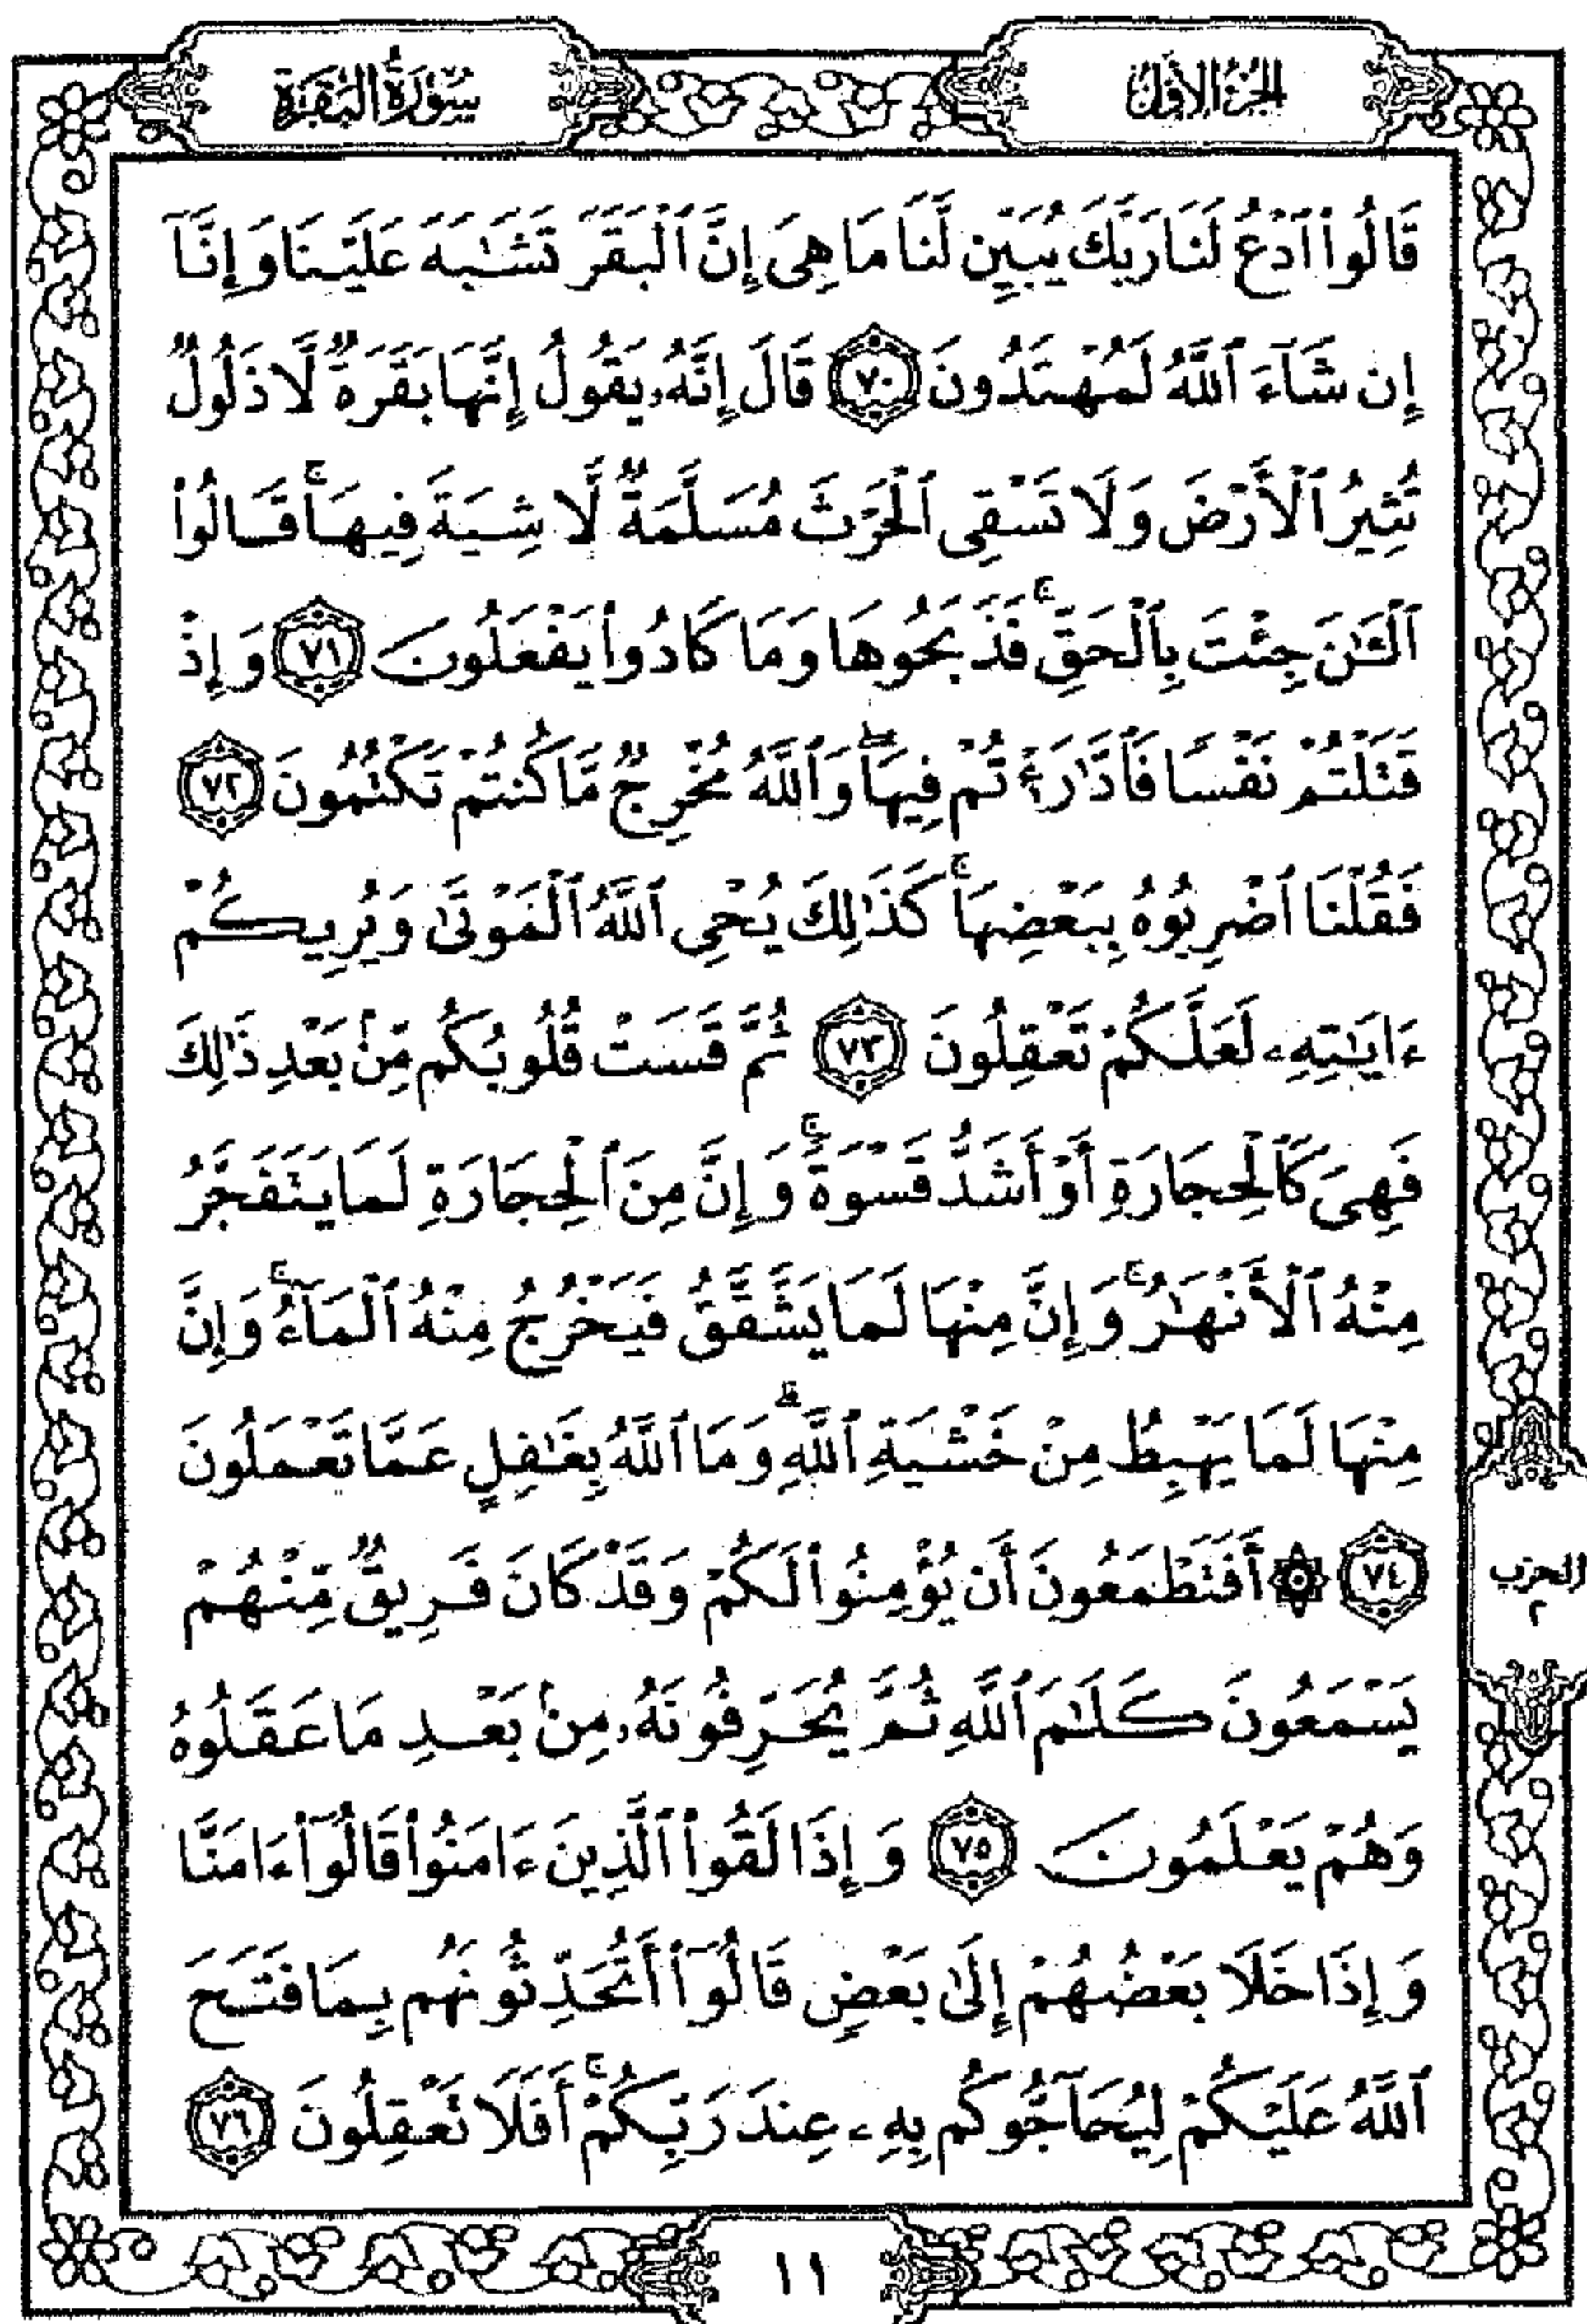 الجزء الأول
سورة البقرة
قَالُوا۟ ٱدْعُ لَنَا رَبَّكَ يُبَيِّن لَّنَا مَا هِىَ إِنَّ ٱلْبَقَرَ تَشَـٰبَهَ عَلَيْنَا وَإِنَّآ
إِن شَآءَ ٱللَّهُ لَمُهْتَدُونَ ٧٠ قَالَ إِنَّهُۥ يَقُولُ إِنَّهَا بَقَرَةٌ لَّا ذَلُولٌ
تُثِيرُ ٱلْأَرْضَ وَلَا تَسْقِى ٱلْحَرْثَ مُسَلَّمَةٌ لَّا شِيَةَ فِيهَا ۚ قَالُوا۟
ٱلْـَٔـٰنَ جِئْتَ بِٱلْحَقِّ ۚ فَذَبَحُوهَا وَمَا كَادُوا۟ يَفْعَلُونَ ٧١ وَإِذْ
قَتَلْتُمْ نَفْسًا فَٱدَّٰرَْٰٔتُمْ فِيهَا ۖ وَٱللَّهُ مُخْرِجٌ مَّا كُنتُمْ تَكْتُمُونَ ٧٢
فَقُلْنَا ٱضْرِبُوهُ بِبَعْضِهَا ۚ كَذَٰلِكَ يُحْىِ ٱللَّهُ ٱلْمَوْتَىٰ وَيُرِيكُمْ
ءَايَـٰتِهِۦ لَعَلَّكُمْ تَعْقِلُونَ ٧٣ ثُمَّ قَسَتْ قُلُوبُكُم مِّنۢ بَعْدِ ذَٰلِكَ
فَهِىَ كَٱلْحِجَارَةِ أَوْ أَشَدُّ قَسْوَةً ۚ وَإِنَّ مِنَ ٱلْحِجَارَةِ لَمَا يَتَفَجَّرُ
مِنْهُ ٱلْأَنْهَـٰرُ ۚ وَإِنَّ مِنْهَا لَمَا يَشَّقَّقُ فَيَخْرُجُ مِنْهُ ٱلْمَآءُ ۚ وَإِنَّ
مِنْهَا لَمَا يَهْبِطُ مِنْ خَشْيَةِ ٱللَّهِ ۗ وَمَا ٱللَّهُ بِغَـٰفِلٍ عَمَّا تَعْمَلُونَ
٧٤ ۞ أَفَتَطْمَعُونَ أَن يُؤْمِنُوا۟ لَكُمْ وَقَدْ كَانَ فَرِيقٌ مِّنْهُمْ
الحزب
٢
يَسْمَعُونَ كَلَـٰمَ ٱللَّهِ ثُمَّ يُحَرِّفُونَهُۥ مِنۢ بَعْدِ مَا عَقَلُوهُ
وَهُمْ يَعْلَمُونَ ٧٥ وَإِذَا لَقُوا۟ ٱلَّذِينَ ءَامَنُوا۟ قَالُوٓا۟ ءَامَنَّا
وَإِذَا خَلَا بَعْضُهُمْ إِلَىٰ بَعْضٍ قَالُوٓا۟ أَتُحَدِّثُونَهُم بِمَا فَتَحَ
ٱللَّهُ عَلَيْكُمْ لِيُحَآجُّوكُم بِهِۦ عِندَ رَبِّكُمْ ۚ أَفَلَا تَعْقِلُونَ ٧٦
١١